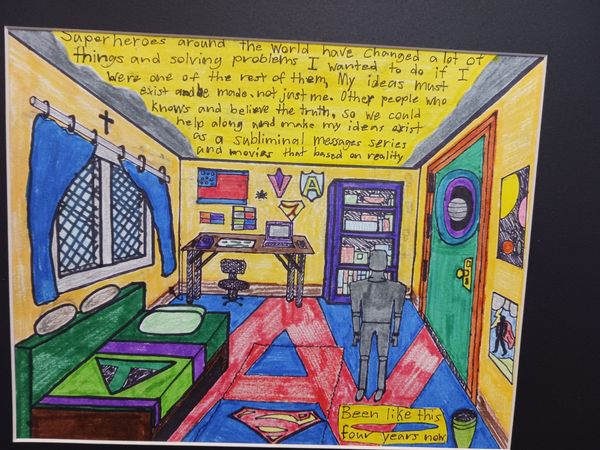 Superheroes around the world have changed a lot of
things and solving problems I wanted to do if I
were one of the rest of them, My ideas must
exist and be made. not just me. Other people who
knows and believe the truth, so we could
help along and make my ideas exist
as a subliminal messages series
and movies that based on reality
V
A
Been like this
four years now